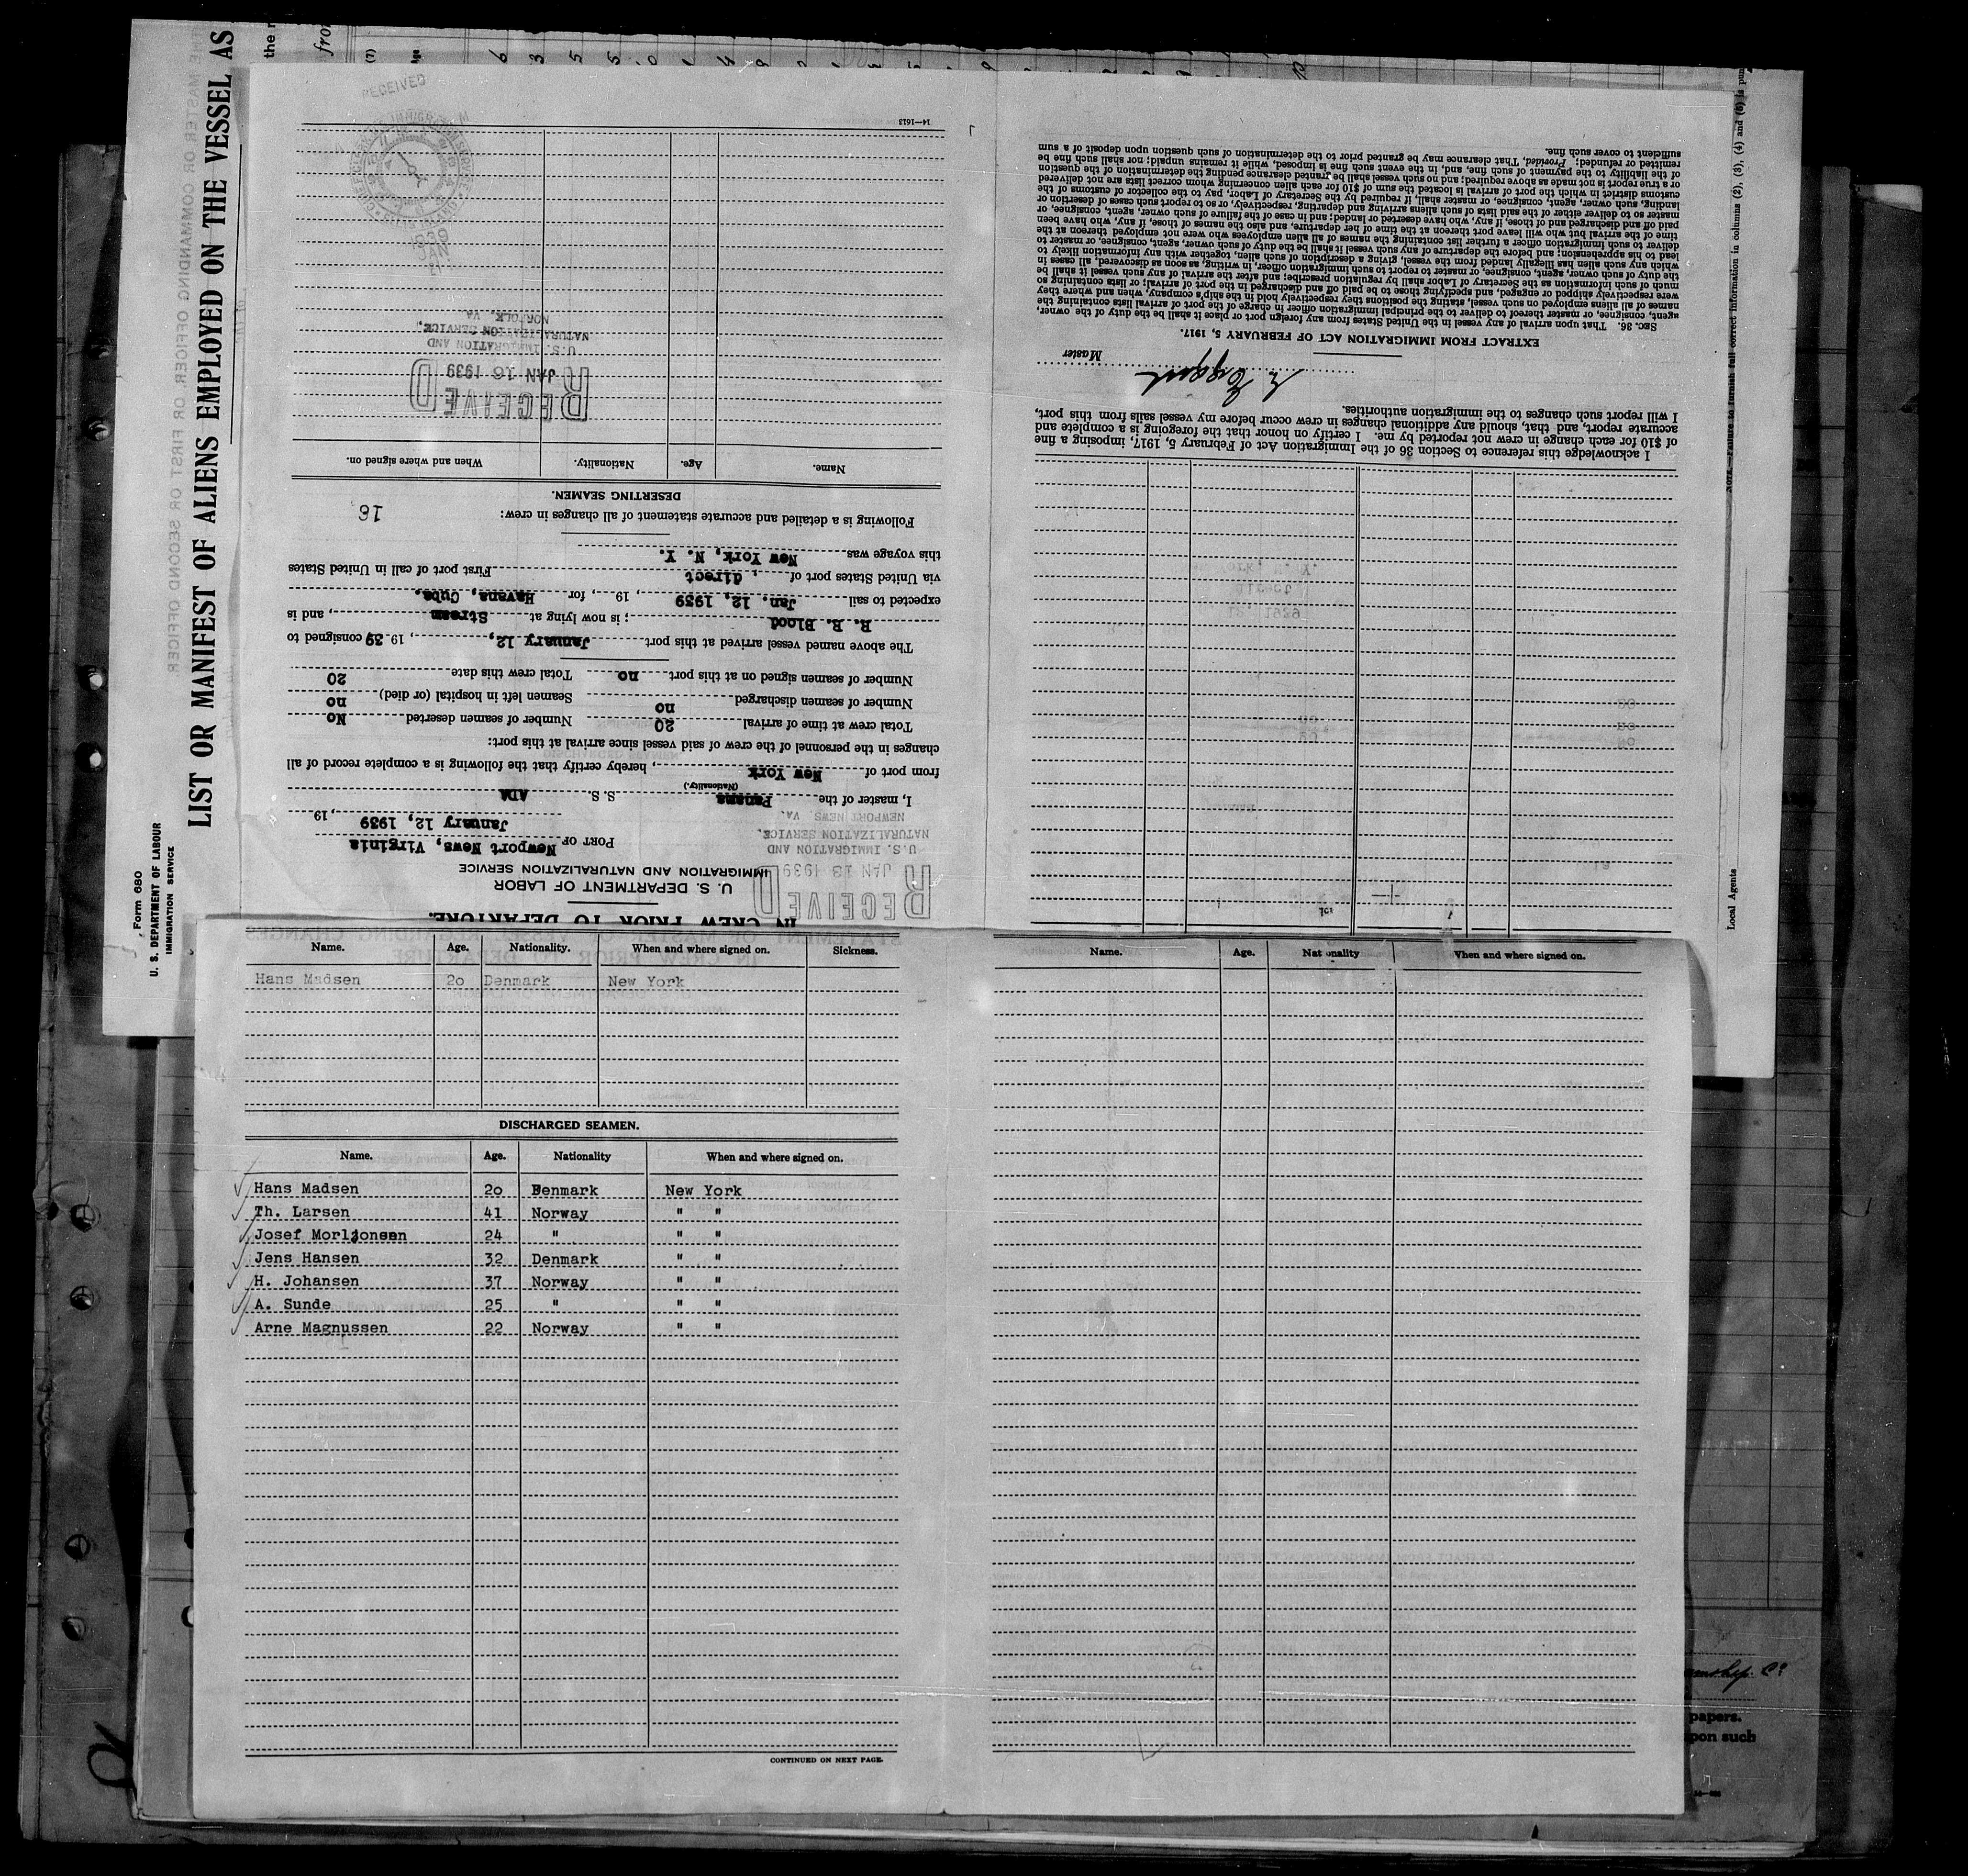 Form 680
U. S. DEPARTMENT OF LABOUR
IMMIGRATION SERVICE
LIST OR MANIFEST OF ALIENS EMPLOYED ON THE VESSEL AS
the
(7)
Age
RECEIVED
IN CREW PRIOR TO DEPARTURE.
U. S. DEPARTMENT OF LABOR
IMMIGRATION AND NATURALIZATION SERVICE
RECEIVED
JAN 13 1939
U. S. IMMIGRATION AND
NATURALIZATION SERVICE,
NEWPORT NEWS VA.
PORT OF Newport News, Virginia
January 12, 1939, 19
I, master of the Panama S. S. ADA
(Nationality.)
from port of New York, hereby certify that the following is a complete record of all
changes in the personnel of the crew of said vessel since arrival at this port:
Total crew at time of arrival 20 Number of seamen deserted No
Number of seamen discharged no Seamen left in hospital (or died) no
Number of seamen signed on at this port no Total crew this date 20
The above named vessel arrived at this port January 12, 19 39 consigned to
R. B. Blood; is now lying at Stream, and is
expected to sail Jan. 12, 1939, 19 , for Havana, Cuba,
via United States port of , direct First port of call in United States
this voyage was New York, N. Y.
Following is a detailed and accurate statement of all changes in crew: 16
DESERTING SEAMEN.
Name. Age. Nationality. When and where signed on.
RECEIVED
JAN 16 1939
U. S. IMMIGRATION AND
NATURALIZATION SERVICE,
NORFOLK, VA.
14—1613
I acknowledge this reference to Section 36 of the Immigration Act of February 5, 1917, imposing a fine
of $10 for each change in crew not reported by me. I certify on honor that the foregoing is a complete and
accurate report, and that, should any additional changes in crew occur before my vessel sails from this port,
I will report such changes to the immigration authorities.
Master
EXTRACT FROM IMMIGRATION ACT OF FEBRUARY 5, 1917.
SEC. 36. That upon arrival of any vessel in the United States from any foreign port or place it shall be the duty of the owner,
agent, consignee, or master thereof to deliver to the principal immigration officer in charge of the port of arrival lists containing the
names of all aliens employed on such vessel, stating the positions they respectively hold in the ship's company, when and where they
were respectively shipped or engaged, and specifying those to be paid off and discharged in the port of arrival; or lists containing so
much of such information as the Secretary of Labor shall by regulation prescribe; and after the arrival of any such vessel it shall be
the duty of such owner, agent, consignee, or master to report to such immigration officer, in writing, as soon as discovered, all cases in
which any such alien has illegally landed from the vessel, giving a description of such alien, together with any information likely to
lead to his apprehension; and before the departure of any such vessel it shall be the duty of such owner, agent, consignee, or master to
deliver to such immigration officer a further list containing the names of all alien employees who were not employed thereon at the
time of the arrival but who will leave port thereon at the time of her departure, and also the names of those, if any, who have been
paid off and discharged and of those, if any, who have deserted or landed; and in case of the failure of such owner, agent, consignee, or
master so to deliver either of the said lists of such aliens arriving and departing, respectively, or so to report such cases of desertion or
landing, such owner, agent, consignee, or master shall, if required by the Secretary of Labor, pay to the collector of customs of the
customs district in which the port of arrival is located the sum of $10 for each alien concerning whom correct lists are not delivered
or a true report is not made as above required; and no such vessel shall be granted clearance pending the determination of the question
of the liability to the payment of such fine, and, in the event such fine is imposed, while it remains unpaid; nor shall such fine be
remitted or refunded; Provided, That clearance may be granted prior to the determination of such question upon deposit of a sum
sufficient to cover such fine.
Local Agents
NOTE.—Failure to furnish full correct information in columns (2), (3), (4) and (5) is pun
Name. Age. Nationality. When and where signed on. Sickness.
Hans Madsen 20 Denmark New York
DISCHARGED SEAMEN.
Name. Age. Nationality When and where signed on.
Hans Madsen 20 Denmark New York
Th. Larsen 41 Norway " "
Josef Morljonsen 24 " " "
Jens Hansen 32 Denmark " "
H. Johansen 37 Norway " "
A. Sunde 25 " " "
Arne Magnussen 22 Norway " "
CONTINUED ON NEXT PAGE.
Name. Age. Nationality When and where signed on.
papers.
pon such